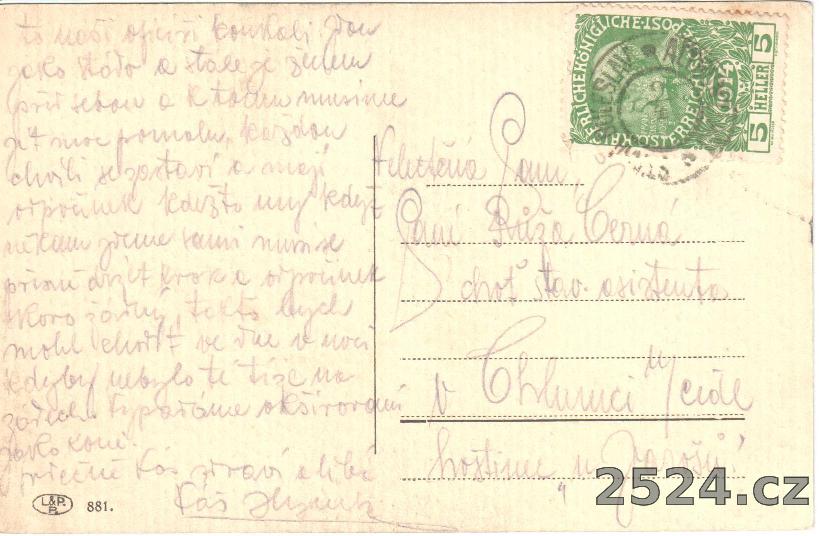 to naši
jako stádo a stále je ženem
před sebou a k tomu musíme
jet moc pomalu, každou
chvíli se zastaví a mají
odpočinek kdežto my když
někam jdeme sami musíme
přísně držet krok a odpočinek
skoro žádný, takto bych
mohl chodit ve dne v noci
kdyby nebylo té tíže na
zádech. Vypadáme
jako koně.
srdečně Vás zdraví a líbá
Váš
Velectěná Paní,
Paní Růža Černá
choť stav. asistenta
v Chlumci n/Cidl
hostinec u
KAISERLICHEKÖNIGLICHE ÖSTERREICHISCHE POST
5 HELLER 5
L&P.
B.
881.
2524.cz